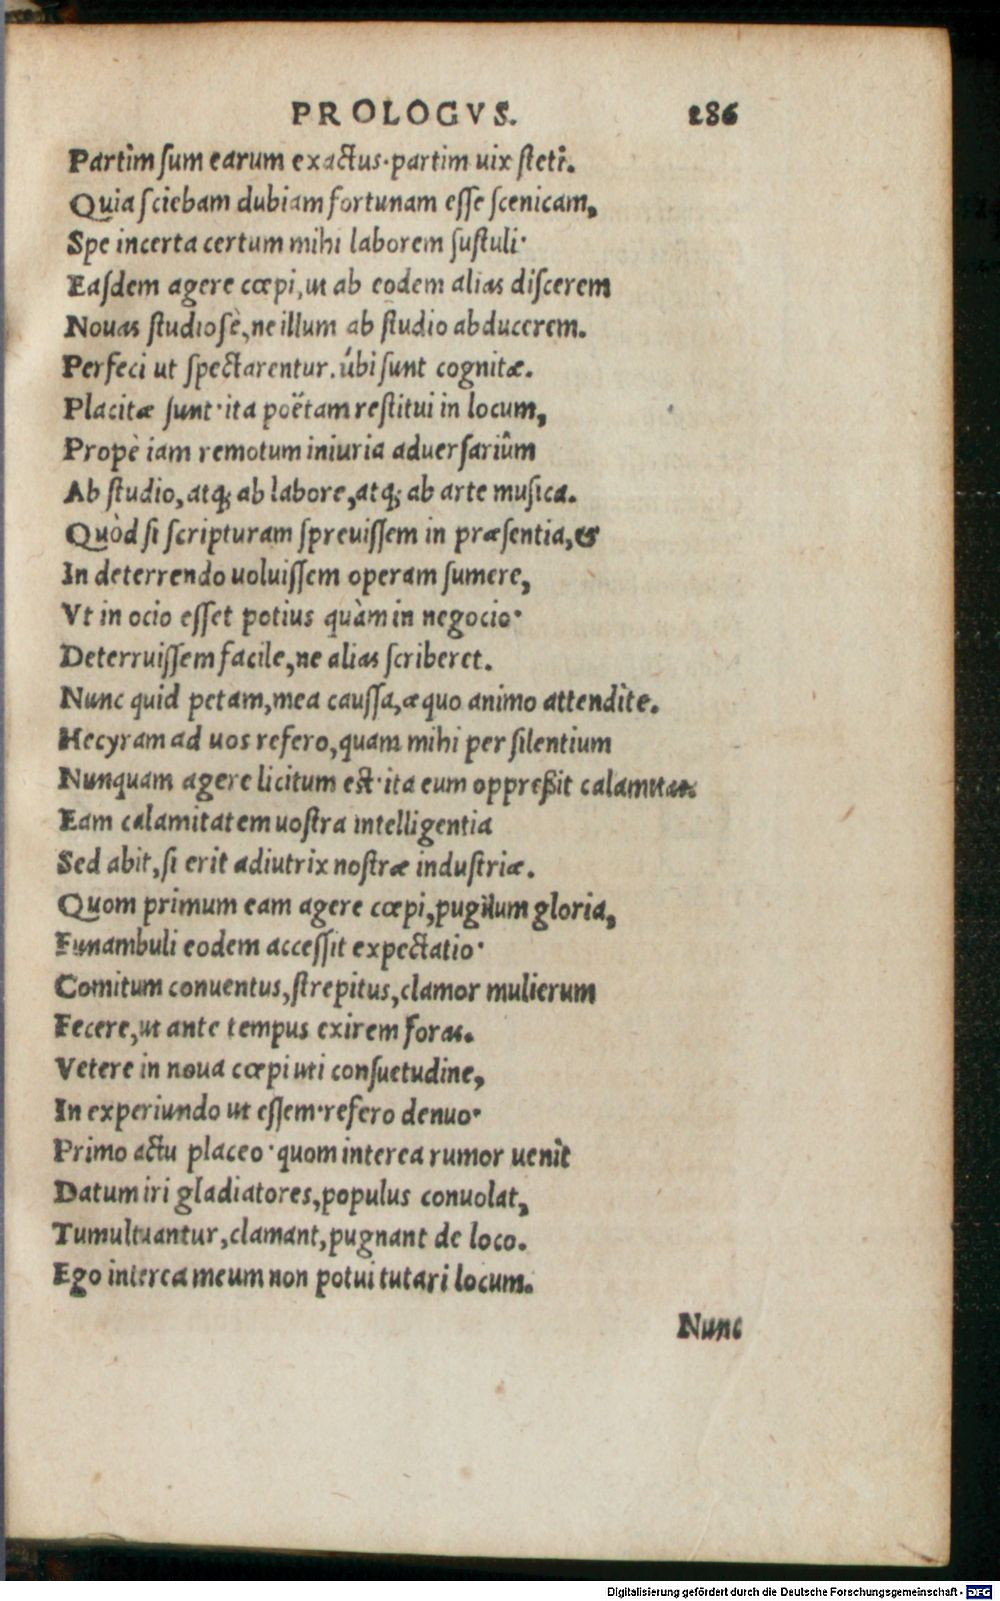 PROLOGVS. 286
Partim ſum earum exactus·partim uix ſteti.
Quia ſciebam dubiam fortunam eſſe ſcenicam,
Spe incerta certum mihi laborem ſuſtuli·
Eaſdem agere cœpi, ut ab eodem alias diſcerem
Nouas ſtudioſè, ne illum ab ſtudio abducerem.
Perfeci ut ſpectarentur. úbi ſunt cognitæ.
Placitæ ſunt·ita poëtam reſtitui in locum,
Propè iam remotum iniuria aduerſariûm
Ab ſtudio, atq; ab labore, atq; ab arte muſica.
Quòd ſi ſcripturam ſpreuiſſem in præſentia, &
In deterrendo uoluiſſem operam ſumere,
Vt in ocio eſſet potius quàm in negocio·
Deterruiſſem facile, ne alias ſcriberet.
Nunc quid petam, mea cauſſa, æquo animo attendite.
Hecyram ad uos refero, quam mihi per ſilentium
Nunquam agere licitum est·ita eum oppreßit calamitas
Eam calamitatem uoſtra intelligentia
Sed abit, ſi erit adiutrix noſtræ induſtriæ.
Quom primum eam agere cœpi, pugilum gloria,
Funambuli eodem acceſſit expectatio·
Comitum conuentus, ſtrepitus, clamor mulierum
Fecere, ut ante tempus exirem foras.
Vetere in noua cœpi uti conſuetudine,
In experiundo ut eſſem·refero denuo·
Primo actu placeo·quom interea rumor uenit
Datum iri gladiatores, populus conuolat,
Tumultuantur, clamant, pugnant de loco.
Ego interea meum non potui tutari locum.
Nunc
Digitalisierung gefördert durch die Deutsche Forschungsgemeinschaft - DFG